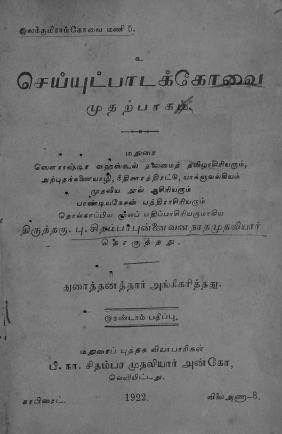 இலக்குமிராம்கோவை மணி 5.
உ
செய்யுட்பாடக்கோவை
முதற்பாகம்.
மதுரை
சௌராஷ்டிர ஹைஸ்கூல் தலைமைத் தமிழாசிரியரும்,
அற்புதக்கணையாழி, நீதிசாரத்திரட்டு, யாக்ஞவல்கியம்
முதலிய நூல் ஆசிரியரும்
பாண்டியகேசன் பத்திராசிரியரும்
தொல்காப்பிய மூலப் பதிப்பாசிரியருமாகிய
திருத்தகு. பு. சிதம்பரபுன்னைவனநாதமுதலியார்
தொகுத்தது.
துரைத்தனத்தார் அங்கீகரித்தது.
இரண்டாம் பதிப்பு.
மதுரைப் புத்தக வியாபாரிகள்
பி. நா. சிதம்பர முதலியார் அன்கோ,
வெளியிட்டது.
காபிரைட். 1922. விலை அணா-8.